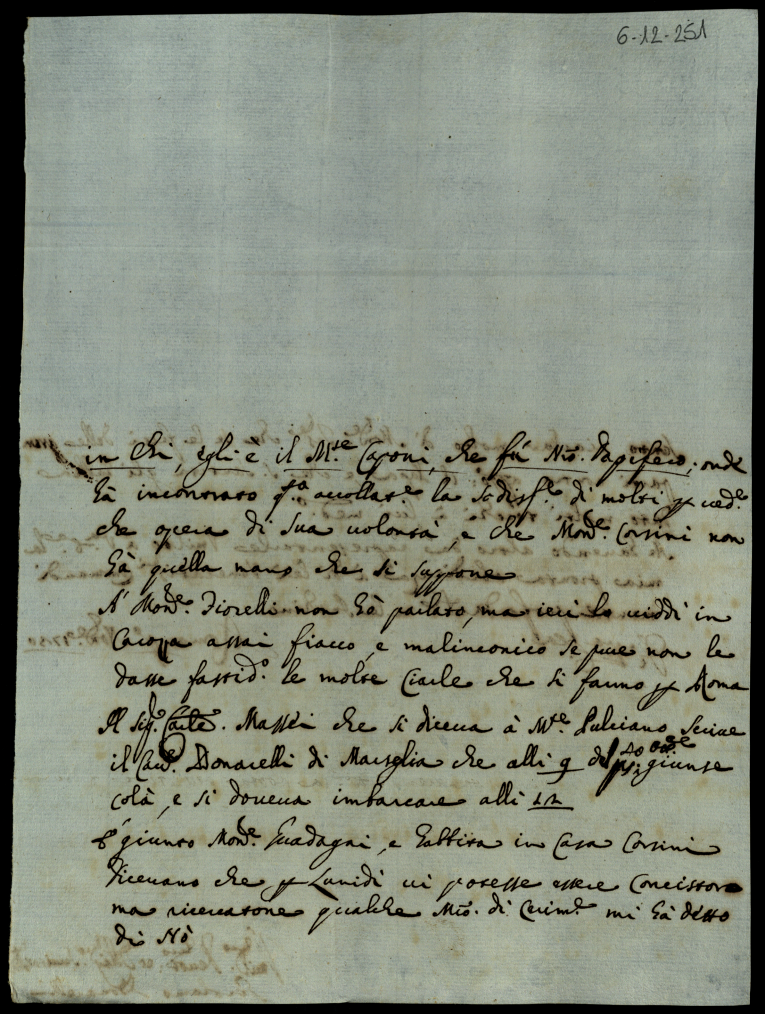 6-12-251
in chi, egli è il M.se Caponi, che fù Mro. Pagifero, onde
hà incontrato accollar.e la Sodisf.e di molti p ved.e
che opera di sua volontà, e che Mon.re Corsini non
hà quella mano che si suppone
A' Mon.re Fiorelli non hò parlato, ma ieri lo viddi in
Carozza assai fiacco, e malinconico se pure non le
dasse fastid.o le molte Ciarle che si fanno p Roma
Il Sig.r Massei che si diceva à M.te Pulciano scrive
il Cav.r Bonacelli di Marsiglia che alli 9 del giunse
colà, e si doveva imbarcare alli 12
È giunto Mon.re Guadagni, e habbita in Casa Corsini
Dicevano che p Lunidi vi potesse essere Concistoro
ma ricercatone qualche Mro. di Cerim.e mi hà detto
di Nò